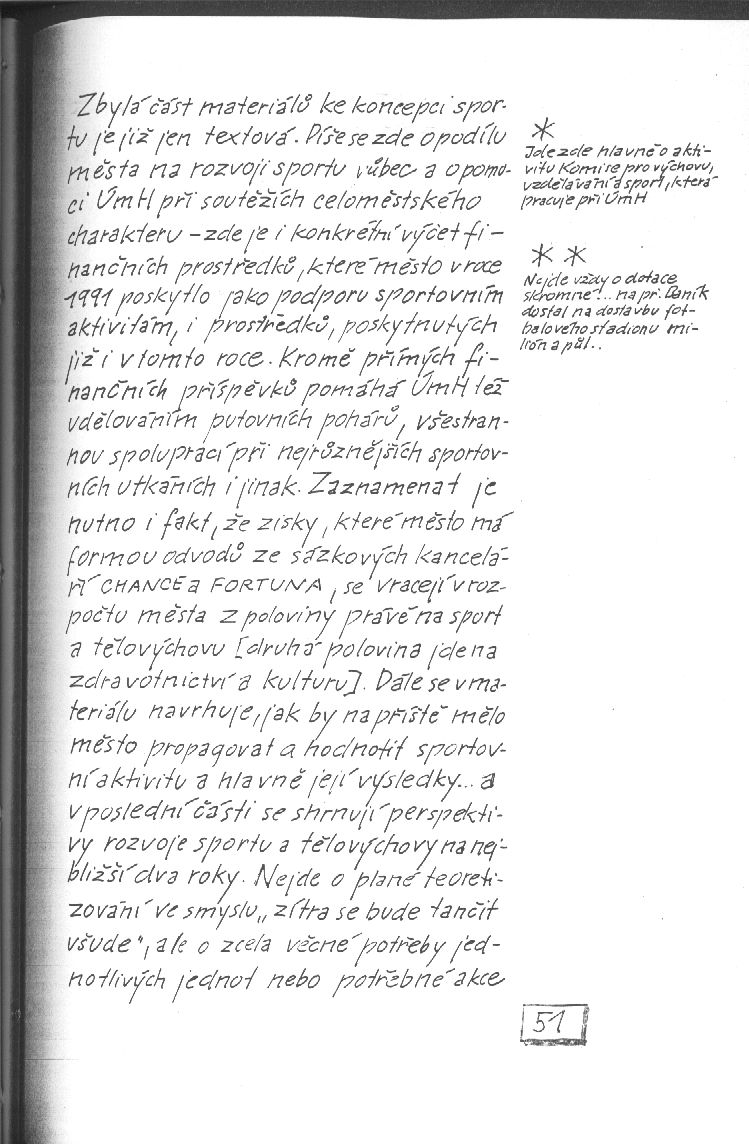 Zbylá část materiálů ke koncepci spor-
tu je již jen textová. Píše se zde o podílu
města na rozvoji sportu vůbec a o pomo-
ci ÚmH při soutěžích celoměstského
charakteru - zde je i konkrétní výčet fi-
nančních prostředků, které město v roce
1991 poskytlo jako podporu sportovním
aktivitám, i prostředků, poskytnutých
již i v tomto roce. Kromě přímých fi-
nančních příspěvků pomáhá ÚmH též
vdělováním putovních pohárů, všestran-
nou spoluprací při nejrůznějších sportov-
ních utkáních i jinak. Zaznamenat je
nutno i fakt, že zisky, které město má
formou odvodů ze sázkových kancelá-
ří CHANCE a FORTUNA, se vracejí v roz-
počtu města z poloviny právě na sport
a tělovýchovu [druhá polovina jde na
zdravotnictví a kulturu]. Dále se v ma-
teriálu navrhuje, jak by napříště mělo
město propagovat a hodnotit sportov-
ní aktivitu a hlavně její výsledky... a
v poslední části se shrnují perspekti-
vy rozvoje sportu a tělovýchovy na nej-
bližší dva roky. Nejde o plané teoreti-
zování ve smyslu „zítra se bude tančit
všude", ale o zcela věcné potřeby jed-
notlivých jednot nebo potřebné akce
*
Jde zde hlavně o akti-
vitu Komise pro výchovu,
vzdělávání a sport, která
pracuje při ÚmH
* *
Nejde vždy o dotace
skromné!... na př. Baník
dostal na dostavbu fot-
balového stadionu mi-
lión a půl..
51